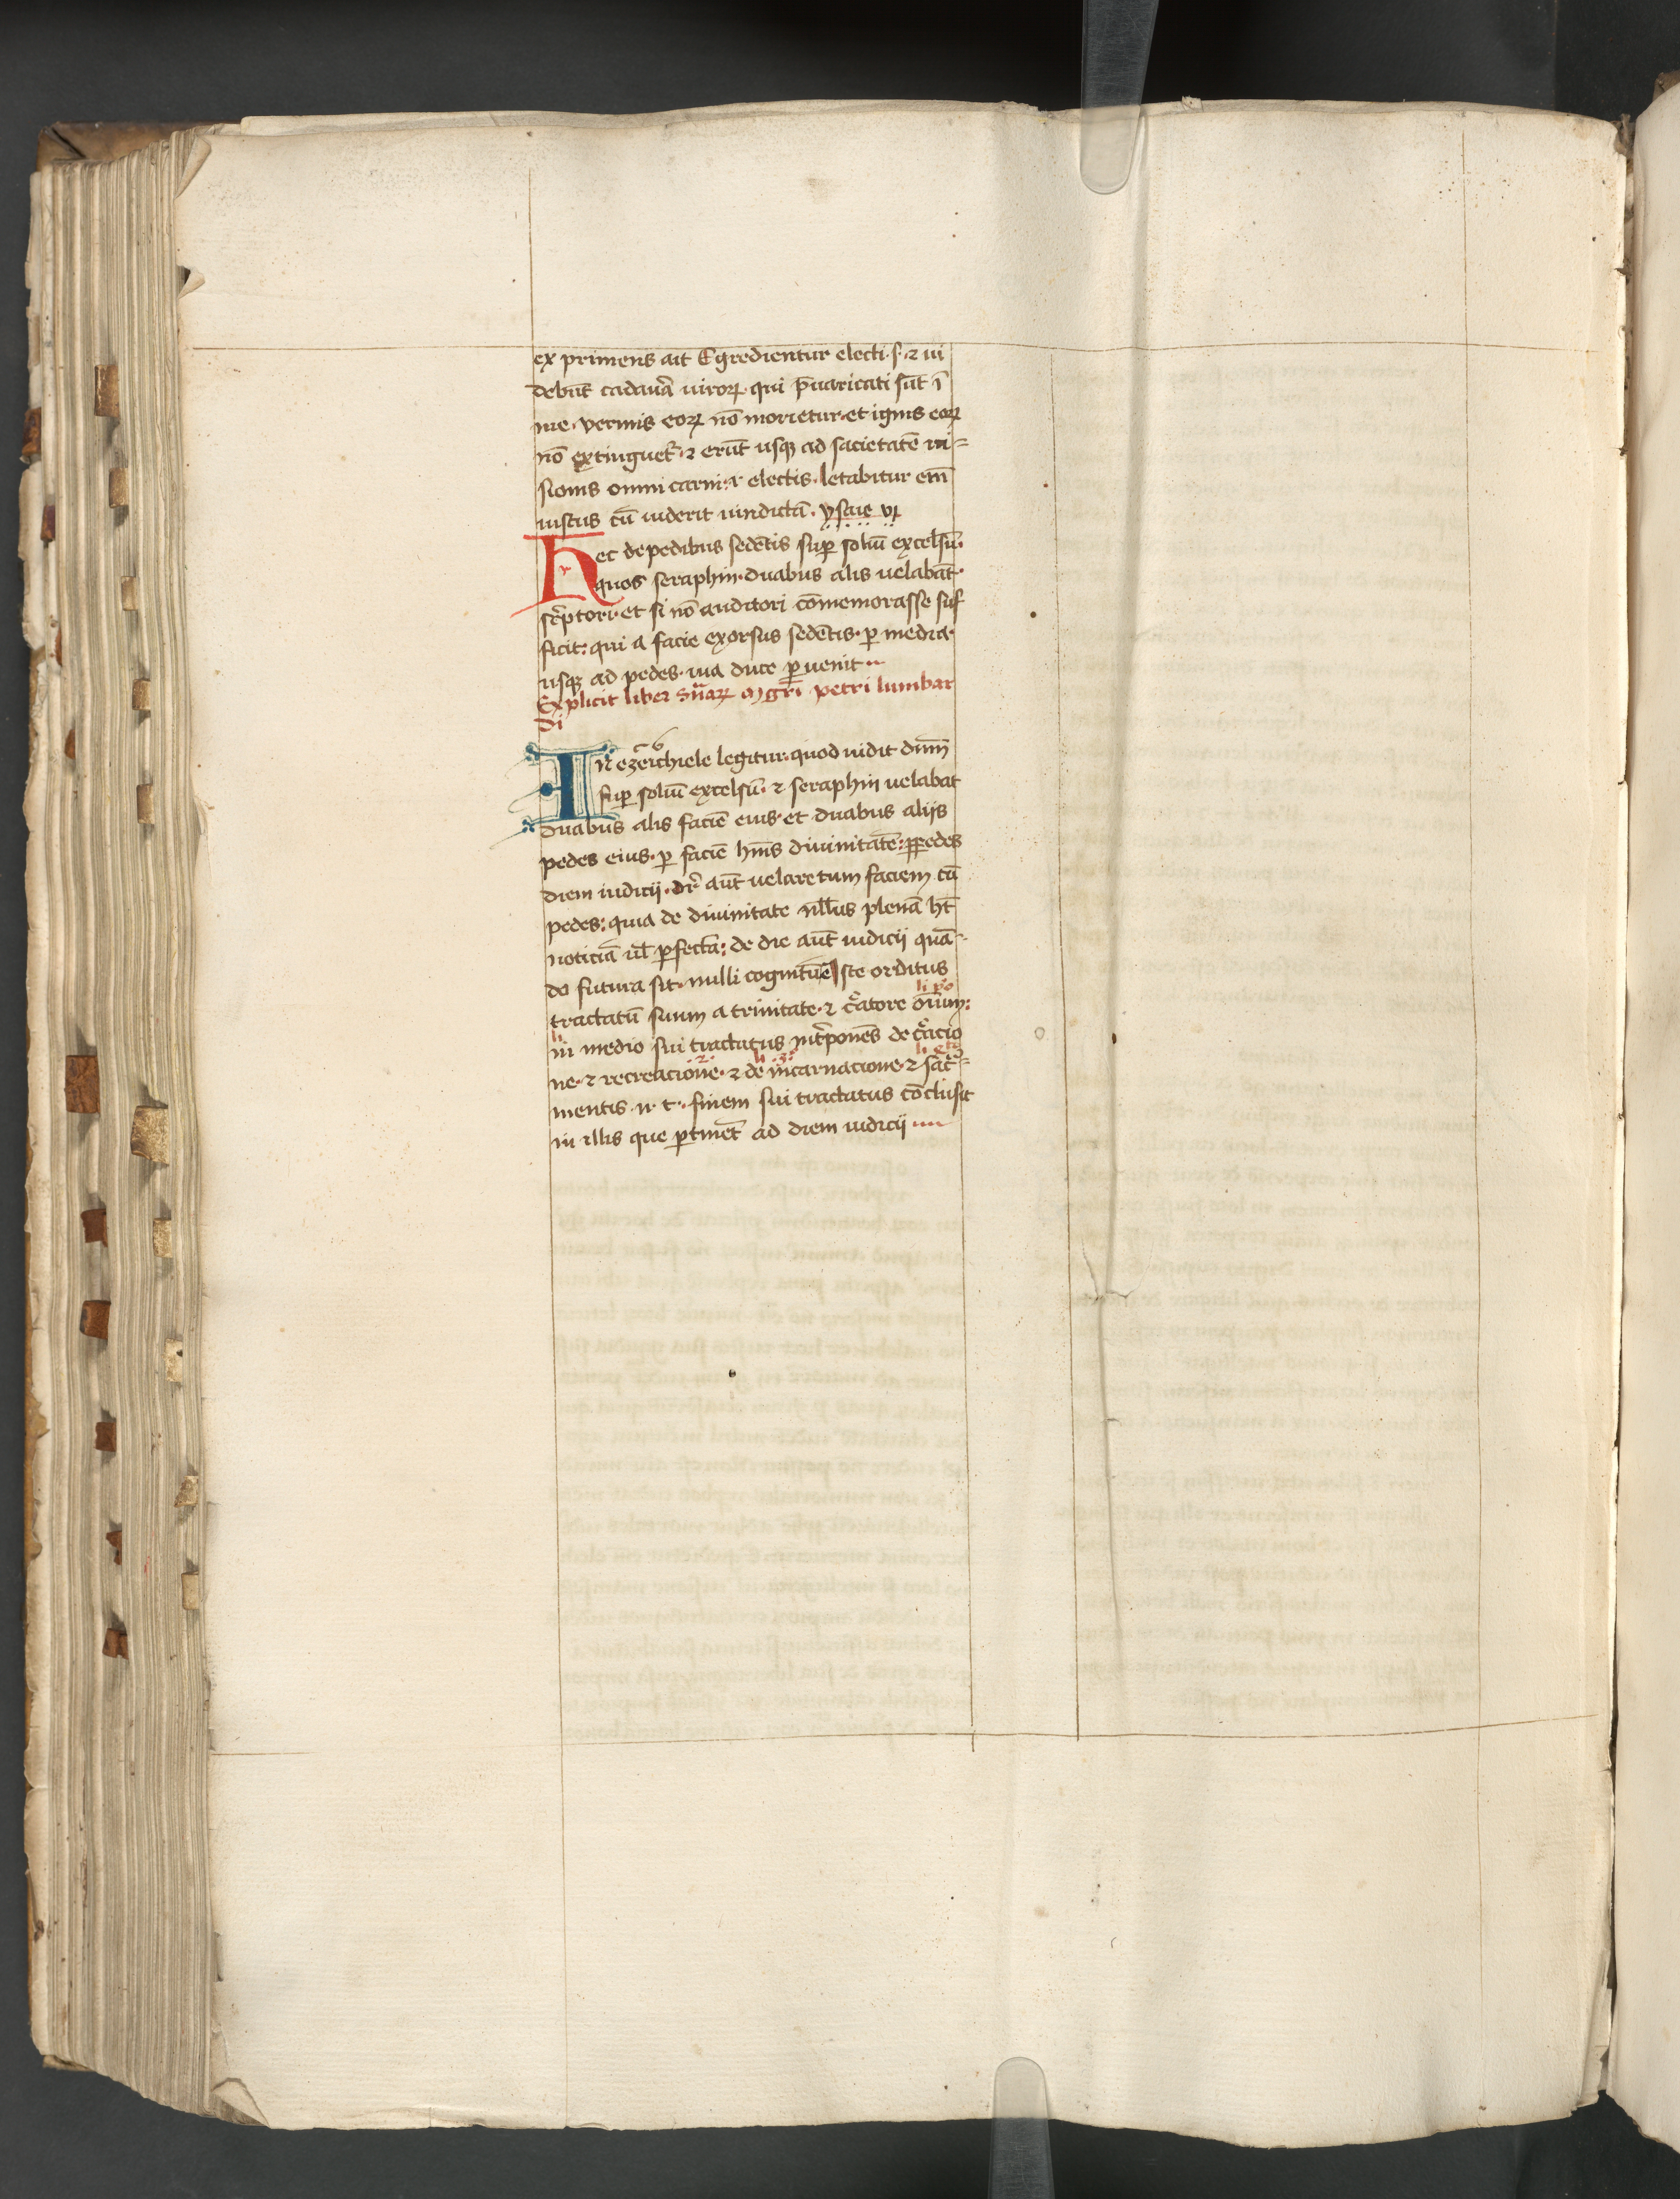 ex primens ait Egredientur electi · s · ⁊ ui
debūt cadau͛a uiroꝝ · qui p̄uaricati sūt ī
me · vermis eoꝝ nō morietur · et ignis eoꝝ
nō extinguet᷑ · ⁊ erūt usqꝫ ad sacietatē ui=
sionis omni carni · i · electis · letabitur em̄
iustus cū uiderit uindictā · ysaie vı
Hec de pedibus sedētis suꝑ soliū excelsū ·
quos seraphin · duabus alis uelabāt ·
sc͛ptori · et si nō auditori cōmemorasse suf
ficit : qui a facie exorsus sedētis · ꝑ media ·
usqꝫ ad pedes · uia duce ꝑuenit ··
Explicit liber sn̄iaꝝ mgr̄i petri lumbar
di
In ezeichiele legitur · quod uidit dn̄m
suꝑ soliū excelsū · ⁊ seraphin uelabat
duabus alis faciē eius · et duabus aliis
pedes eius · ꝑ faciē hn̄s diuinitatē : ꝑ pedes
diem iudicij · dr̄ aūt uelare tum faciem cū
pedes : quia de diuinitate nll̄us plenā hꝫ
noticiā ul̄ ꝑfectā : de die aūt iudicij quā=
do futura sit · nulli cognitū ē Iste orditus
li pͦ
tractatū suum a trinitate · ⁊ c͛atore om̄ium :
li
in medio sui tractatus int͛ponēs de c͛acio
2 li 3 li 4
ne · ⁊ recreacione · ⁊ de incarnacione · ⁊ sac͛=
mentis · n · t · finem sui tractatus cōclusit
in illis que ꝑtinēt ad diem iudicij